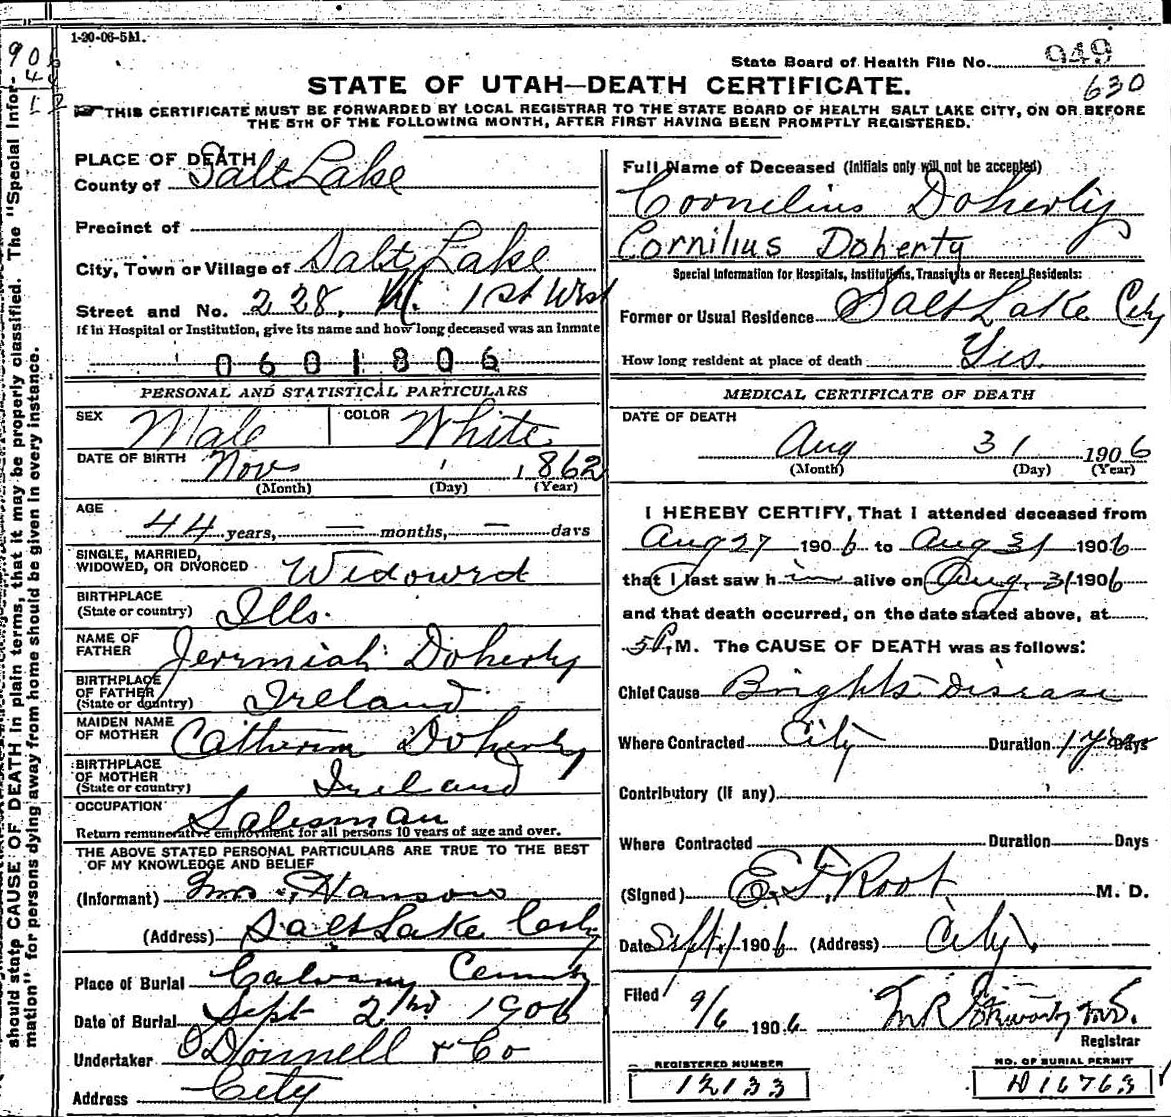 1-20-06-5M.
State Board of Health File No. 949
630
STATE OF UTAH—DEATH CERTIFICATE.
THIS CERTIFICATE MUST BE FORWARDED BY LOCAL REGISTRAR TO THE STATE BOARD OF HEALTH SALT LAKE CITY, ON OR BEFORE
THE 5TH OF THE FOLLOWING MONTH, AFTER FIRST HAVING BEEN PROMPTLY REGISTERED.
should state CAUSE OF DEATH in plain terms, that it may be properly classified. The "Special Infor-
mation" for persons dying away from home should be given in every instance.
PLACE OF DEATH
County of Salt Lake
Precinct of
City, Town or Village of Salt Lake
Street and No. 228. W. 1st West
If in Hospital or Institution, give its name and how long deceased was an Inmate
0601806
PERSONAL AND STATISTICAL PARTICULARS
SEX Male COLOR White
DATE OF BIRTH Nov 1 1862
(Month) (Day) (Year)
AGE
44 years, — months, — days
SINGLE, MARRIED,
WIDOWED, OR DIVORCED Widowed
BIRTHPLACE
(State or country) Ills.
NAME OF
FATHER Jeremiah Doherty
BIRTHPLACE
OF FATHER
(State or country) Ireland
MAIDEN NAME
OF MOTHER Catherin Doherty
BIRTHPLACE
OF MOTHER
(State or country) Ireland
OCCUPATION Salesman
Return remunerative employment for all persons 10 years of age and over.
THE ABOVE STATED PERSONAL PARTICULARS ARE TRUE TO THE BEST
OF MY KNOWLEDGE AND BELIEF
(Informant) Mrs Hanson
(Address) Salt Lake City
Place of Burial Calvary Cemety
Date of Burial Sept 2nd 1906
Undertaker O'Donnell & Co
Address City
Full Name of Deceased (Initials only will not be accepted)
Cornelius Doherty
Cornilius Doherty
Special Information for Hospitals, Institutions, Transients or Recent Residents:
Former or Usual Residence Salt Lake City
How long resident at place of death Yes.
MEDICAL CERTIFICATE OF DEATH
DATE OF DEATH
Aug 31 1906
(Month) (Day) (Year)
I HEREBY CERTIFY, That I attended deceased from
Aug 27 1906 to Aug 31 1906
that I last saw him alive on Aug. 31 1906
and that death occurred, on the date stated above, at
5P. M. The CAUSE OF DEATH was as follows:
Chief Cause Brights Disease
Where Contracted City Duration 1 year Days
Contributory (If any)
Where Contracted Duration Days
(Signed) E. F. Root M. D.
Date Sept. 1 1906 (Address) City
Filed 9/6 1906
Registrar
REGISTERED NUMBER
12133
NO. OF BURIAL PERMIT